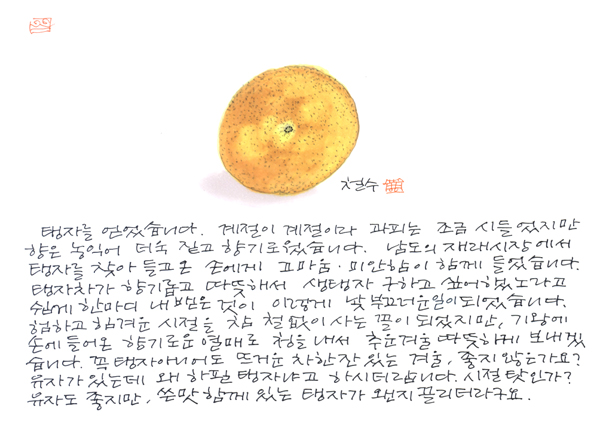 철수
탱자를 얻었습니다. 계절이 계절이라 과피는 조금 시들었지만
향은 농익어 더욱 짙고 향기로웠습니다. 남도의 재래시장에서
탱자를 찾아 들고온 손에게 고마움·미안함이 함께 들었습니다.
탱자차가 향기롭고 따뜻해서 생탱자 구하고 싶어했노라고
쉽게 한마디 내뱉은 것이 이렇게 낯부끄러운일이되었습니다.
험하고 힘겨운 시절을 참 철없이 사는 꼴이 되었지만, 기왕에
손에 들어온 향기로운 열매로 청을 내서 추운겨울 따뜻하게 보내겠
습니다. 꼭 탱자아니어도 뜨거운 차 한잔 있는 겨울, 좋지 않은가요?
유자가 있는데 왜 하필 탱자냐고 하시더랍니다. 시절 탓인가?
유자도 좋지만, 쓴맛 함께 있는 탱자가 왠지 끌리더라구요.